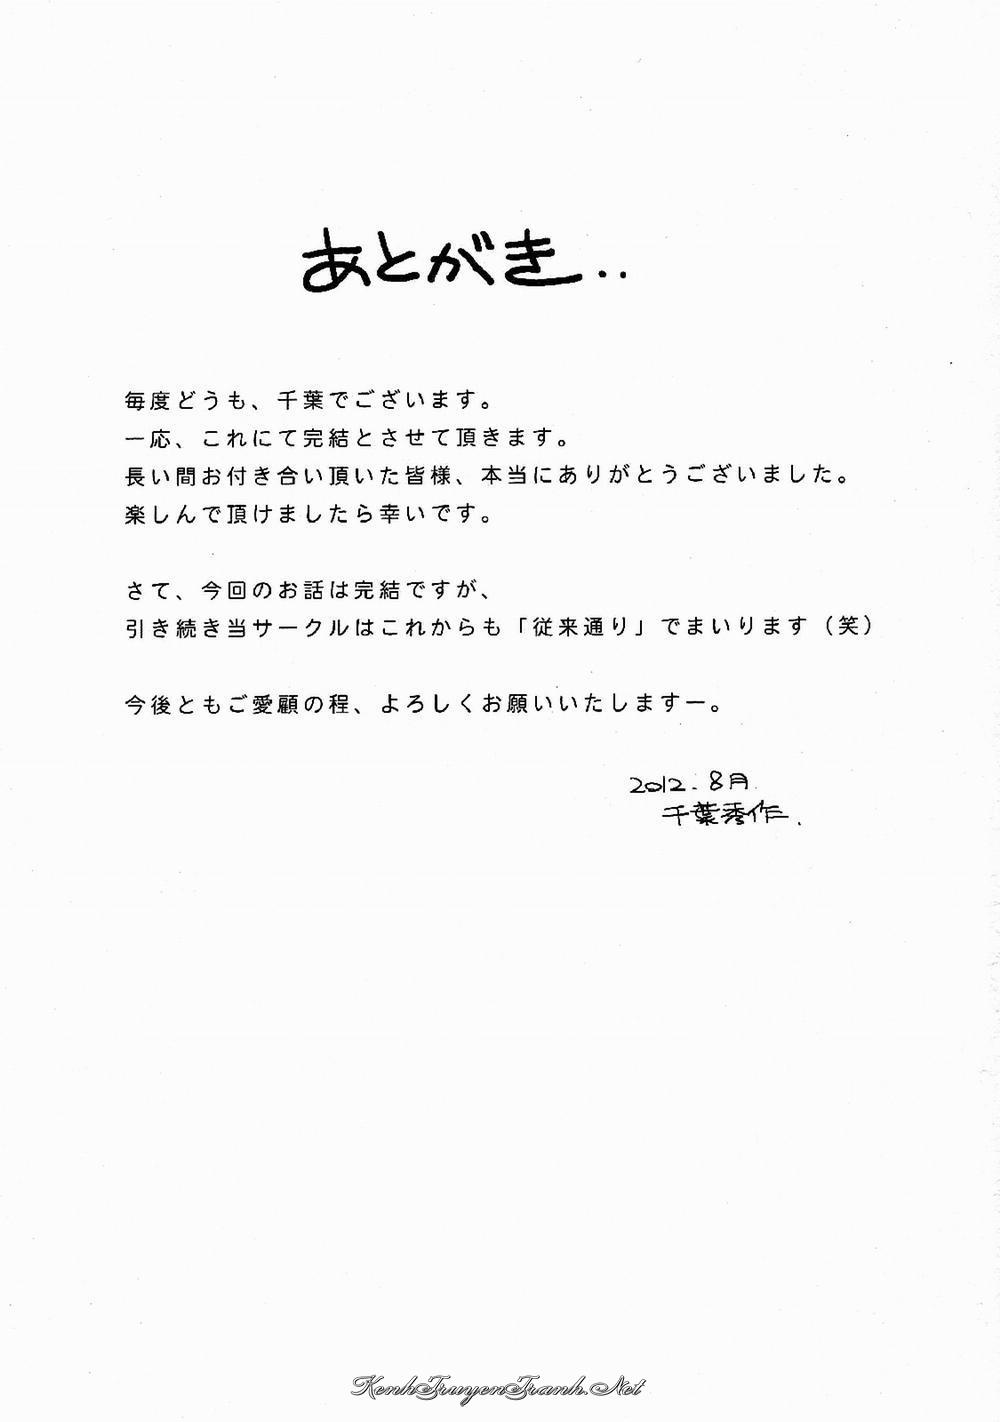 あとがき..
毎度どうも、千葉でございます。
一応、これにて完結とさせて頂きます。
長い間お付き合い頂いた皆様、本当にありがとうございました。
楽しんで頂けましたら幸いです。
さて、今回のお話は完結ですが、
引き続き当サークルはこれからも「従来通り」でまいります（笑）
今後ともご愛顧の程、よろしくお願いいたしますー。
2012.8月.
千葉秀作.
KenhTruyenTranh.Net